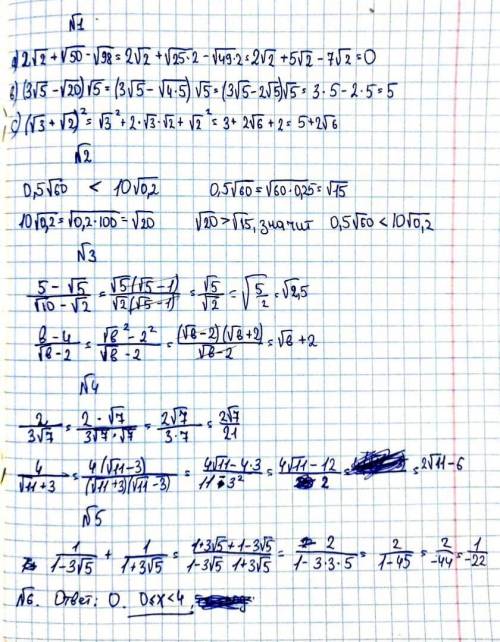 √1
а) 2√2 + √50 - √98 = 2√2 + √25·2 - √49·2 = 2√2 + 5√2 - 7√2 = 0
в) (3√5 - √20)√5 = (3√5 - √4·5) √5 = (3√5 - 2√5)√5 = 3·5 - 2·5 = 5
с) (√3 + √2)² = √3² + 2·√3·√2 + √2² = 3 + 2√6 + 2 = 5 + 2√6
√2
0,5√60 < 10√0,2 0,5√60 = √60·0,25 = √15
10√0,2 = √0,2·100 = √20 √20 > √15, значит 0,5√60 < 10√0,2
√3
(5 - √5)/(√10 - √2) = (√5(√5 - 1))/(√2(√5 - 1)) = √5/√2 = √(5/2) = √2,5
(в - 4)/(√в - 2) = (√в² - 2²)/(√в - 2) = ((√в - 2)(√в + 2))/(√в - 2) = √в + 2
√4
2/(3√7) = (2·√7)/(3√7·√7) = 2√7/(3·7) = 2√7/21
4/(√11 + 3) = (4(√11 - 3))/((√11 + 3)(√11 - 3)) = (4√11 - 4·3)/(11 - 3²) = (4√11 - 12)/2 = = 2√11 - 6
√5
1/(1 - 3√5) + 1/(1 + 3√5) = (1 + 3√5 + 1 - 3√5)/(1 - 3√5 1 + 3√5) = 2/(1 - 3·3·5) = 2/(1 - 45) = 2/-44 = 1/-22
√6. Ответ: 0. 0≤x<4.